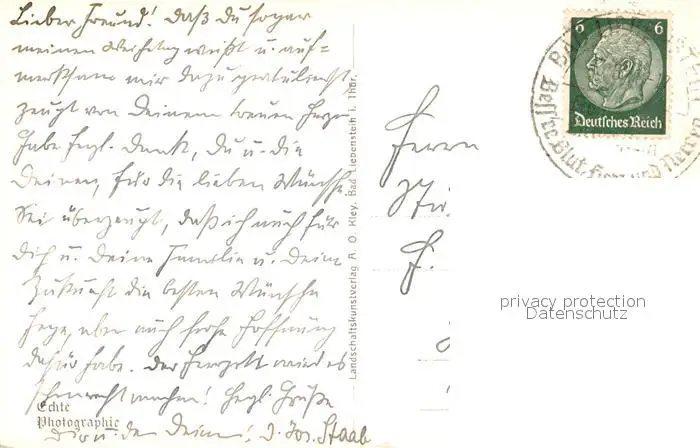 Lieber Freund! Daß Du sogar
meinen Weihetag weißt u. auf=
merksam mir dazu gratulierst,
zeugt von Deinem treuen Herz.
Habe herzl. Dank, Du u. die
Deinen, für die lieben Wünsche.
Sei überzeugt, daß ich auch für
Dich u. Deine Familie u. Deine
Zukunft die besten Wünsche
hege, aber auch frohe Hoffnung
dafür habe. Der Herrgott wird es
schon recht machen! Herzl. Grüße
Dir u. den Deinen! D. Jos. Staab
Echte
Photographie
Landschaftskunstverlag A. O. Kley, Bad Liebenstein i. Thür.
Herrn
6 6
Deutsches Reich
BAD LIEBENSTEIN
Blut, Herz und Nerven
privacy protection
Datenschutz